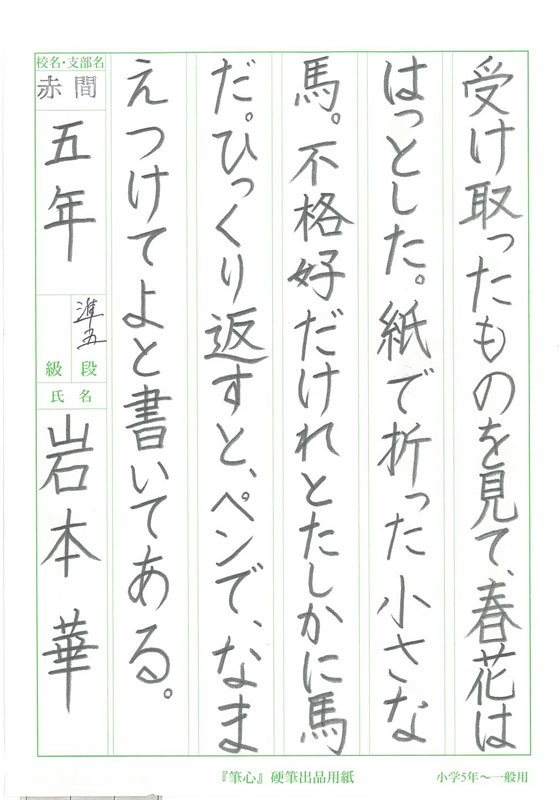 受け取ったものを見て、春花は
はっとした。紙で折った小さな
馬。不格好だけれとたしかに馬
だ。ひっくり返すと、ペンで、なま
えつけてよと書いてある。
校名・支部名
赤間
五年
段 準五
級
氏名
岩本華
『筆心』硬筆出品用紙
小学5年～一般用